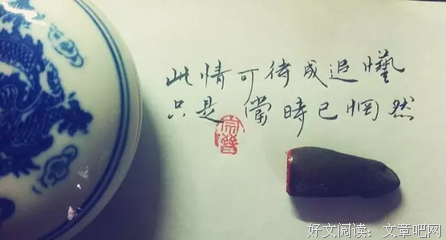 此情可待成追憶
只是當時已惘然
好文阅读：文章吧网